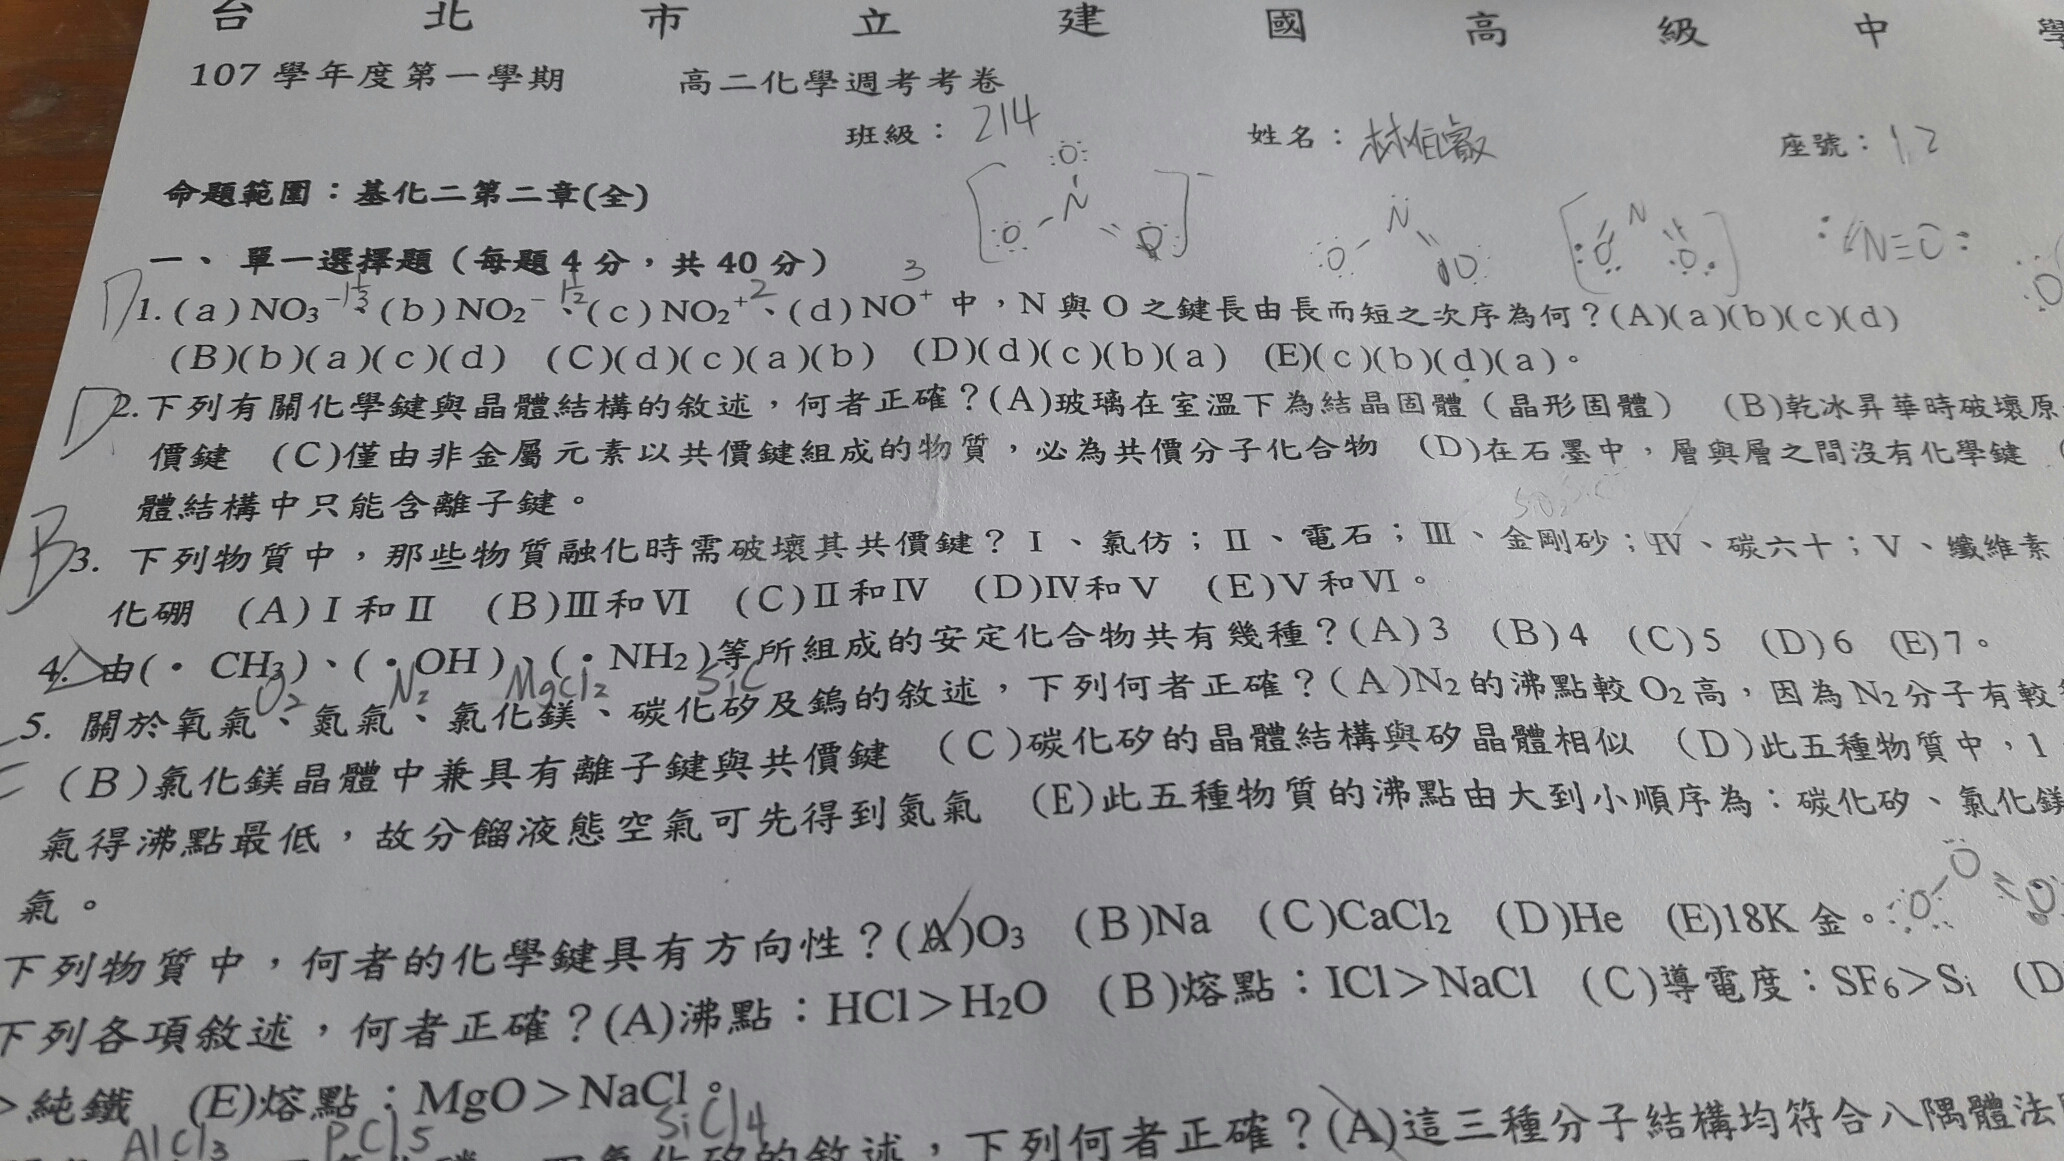 台北市立建國高級中學
107 學年度第一學期 高二化學週考考卷
班級： 214 姓名： 林 座號： 12
命題範圍：基化二第二章(全)
一、 單一選擇題（每題 4 分，共 40 分）
D 1. (a) NO₃⁻ 1⅓、(b) NO₂⁻ 1½、(c) NO₂⁺ 2、(d) NO⁺ 3 中，N 與 O 之鍵長由長而短之次序為何？(A)(a)(b)(c)(d)
(B)(b)(a)(c)(d) (C)(d)(c)(a)(b) (D)(d)(c)(b)(a) (E)(c)(b)(d)(a)。
D 2.下列有關化學鍵與晶體結構的敘述，何者正確？(A)玻璃在室溫下為結晶固體（晶形固體） (B)乾冰昇華時破壞原
價鍵 (C)僅由非金屬元素以共價鍵組成的物質，必為共價分子化合物 (D)在石墨中，層與層之間沒有化學鍵 (
體結構中只能含離子鍵。
B 3. 下列物質中，那些物質融化時需破壞其共價鍵？ I 、氯仿；II 、電石；III 、金剛砂；IV 、碳六十；V 、纖維素
化硼 (A) I 和 II (B)III和VI (C)II和IV (D)IV和V (E)V和VI。
4. 由(・CH₃)、(・OH)、(・NH₂)等所組成的安定化合物共有幾種？(A)3 (B)4 (C)5 (D)6 (E)7。
O₂ N₂ MgCl₂ SiC
5. 關於氧氣、氮氣、氯化鎂、碳化矽及鎢的敘述，下列何者正確？(A)N₂的沸點較O₂高，因為N₂分子有較
C (B)氯化鎂晶體中兼具有離子鍵與共價鍵 (C)碳化矽的晶體結構與矽晶體相似 (D)此五種物質中，1
氣得沸點最低，故分餾液態空氣可先得到氮氣 (E)此五種物質的沸點由大到小順序為：碳化矽、氯化鎂
氣。
下列物質中，何者的化學鍵具有方向性？(A)O₃ (B)Na (C)CaCl₂ (D)He (E)18K 金。
下列各項敘述，何者正確？(A)沸點：HCl＞H₂O (B)熔點：ICl＞NaCl (C)導電度：SF₆＞Si (D
＞純鐵 (E)熔點：MgO＞NaCl。
AlCl₃ PCl₅ SiCl₄
四氯化矽的敘述，下列何者正確？(A)這三種分子結構均符合八隅體法